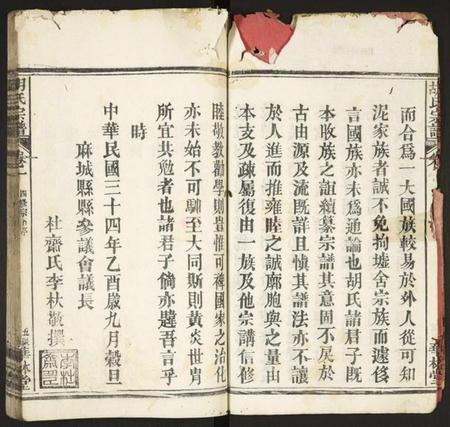 胡氏宗譜
而合爲一大國族較易於外人從可知
泥家族者誠不免拘墟舍宗族而遽侈
言國族亦未爲通論也胡氏諸君子既
本收族之誼續纂宗譜其意固不戾於
古由源及流既詳且慎其譜法亦不讓
於人進而推雍睦之誠廓胞與之量由
本支及疎屬復由一族及他宗講信修
睦敬教勸學則豈惟可裨國家之治化
亦未始不可馴至大同斯則黃炎世冑
所宜共勉者也諸君子倘亦韙吾言乎
時
中華民國三十四年乙酉歲九月穀旦
麻城縣縣參議會議長
杜齋氏李杕敬撰
胡氏宗譜
卷一
華林堂